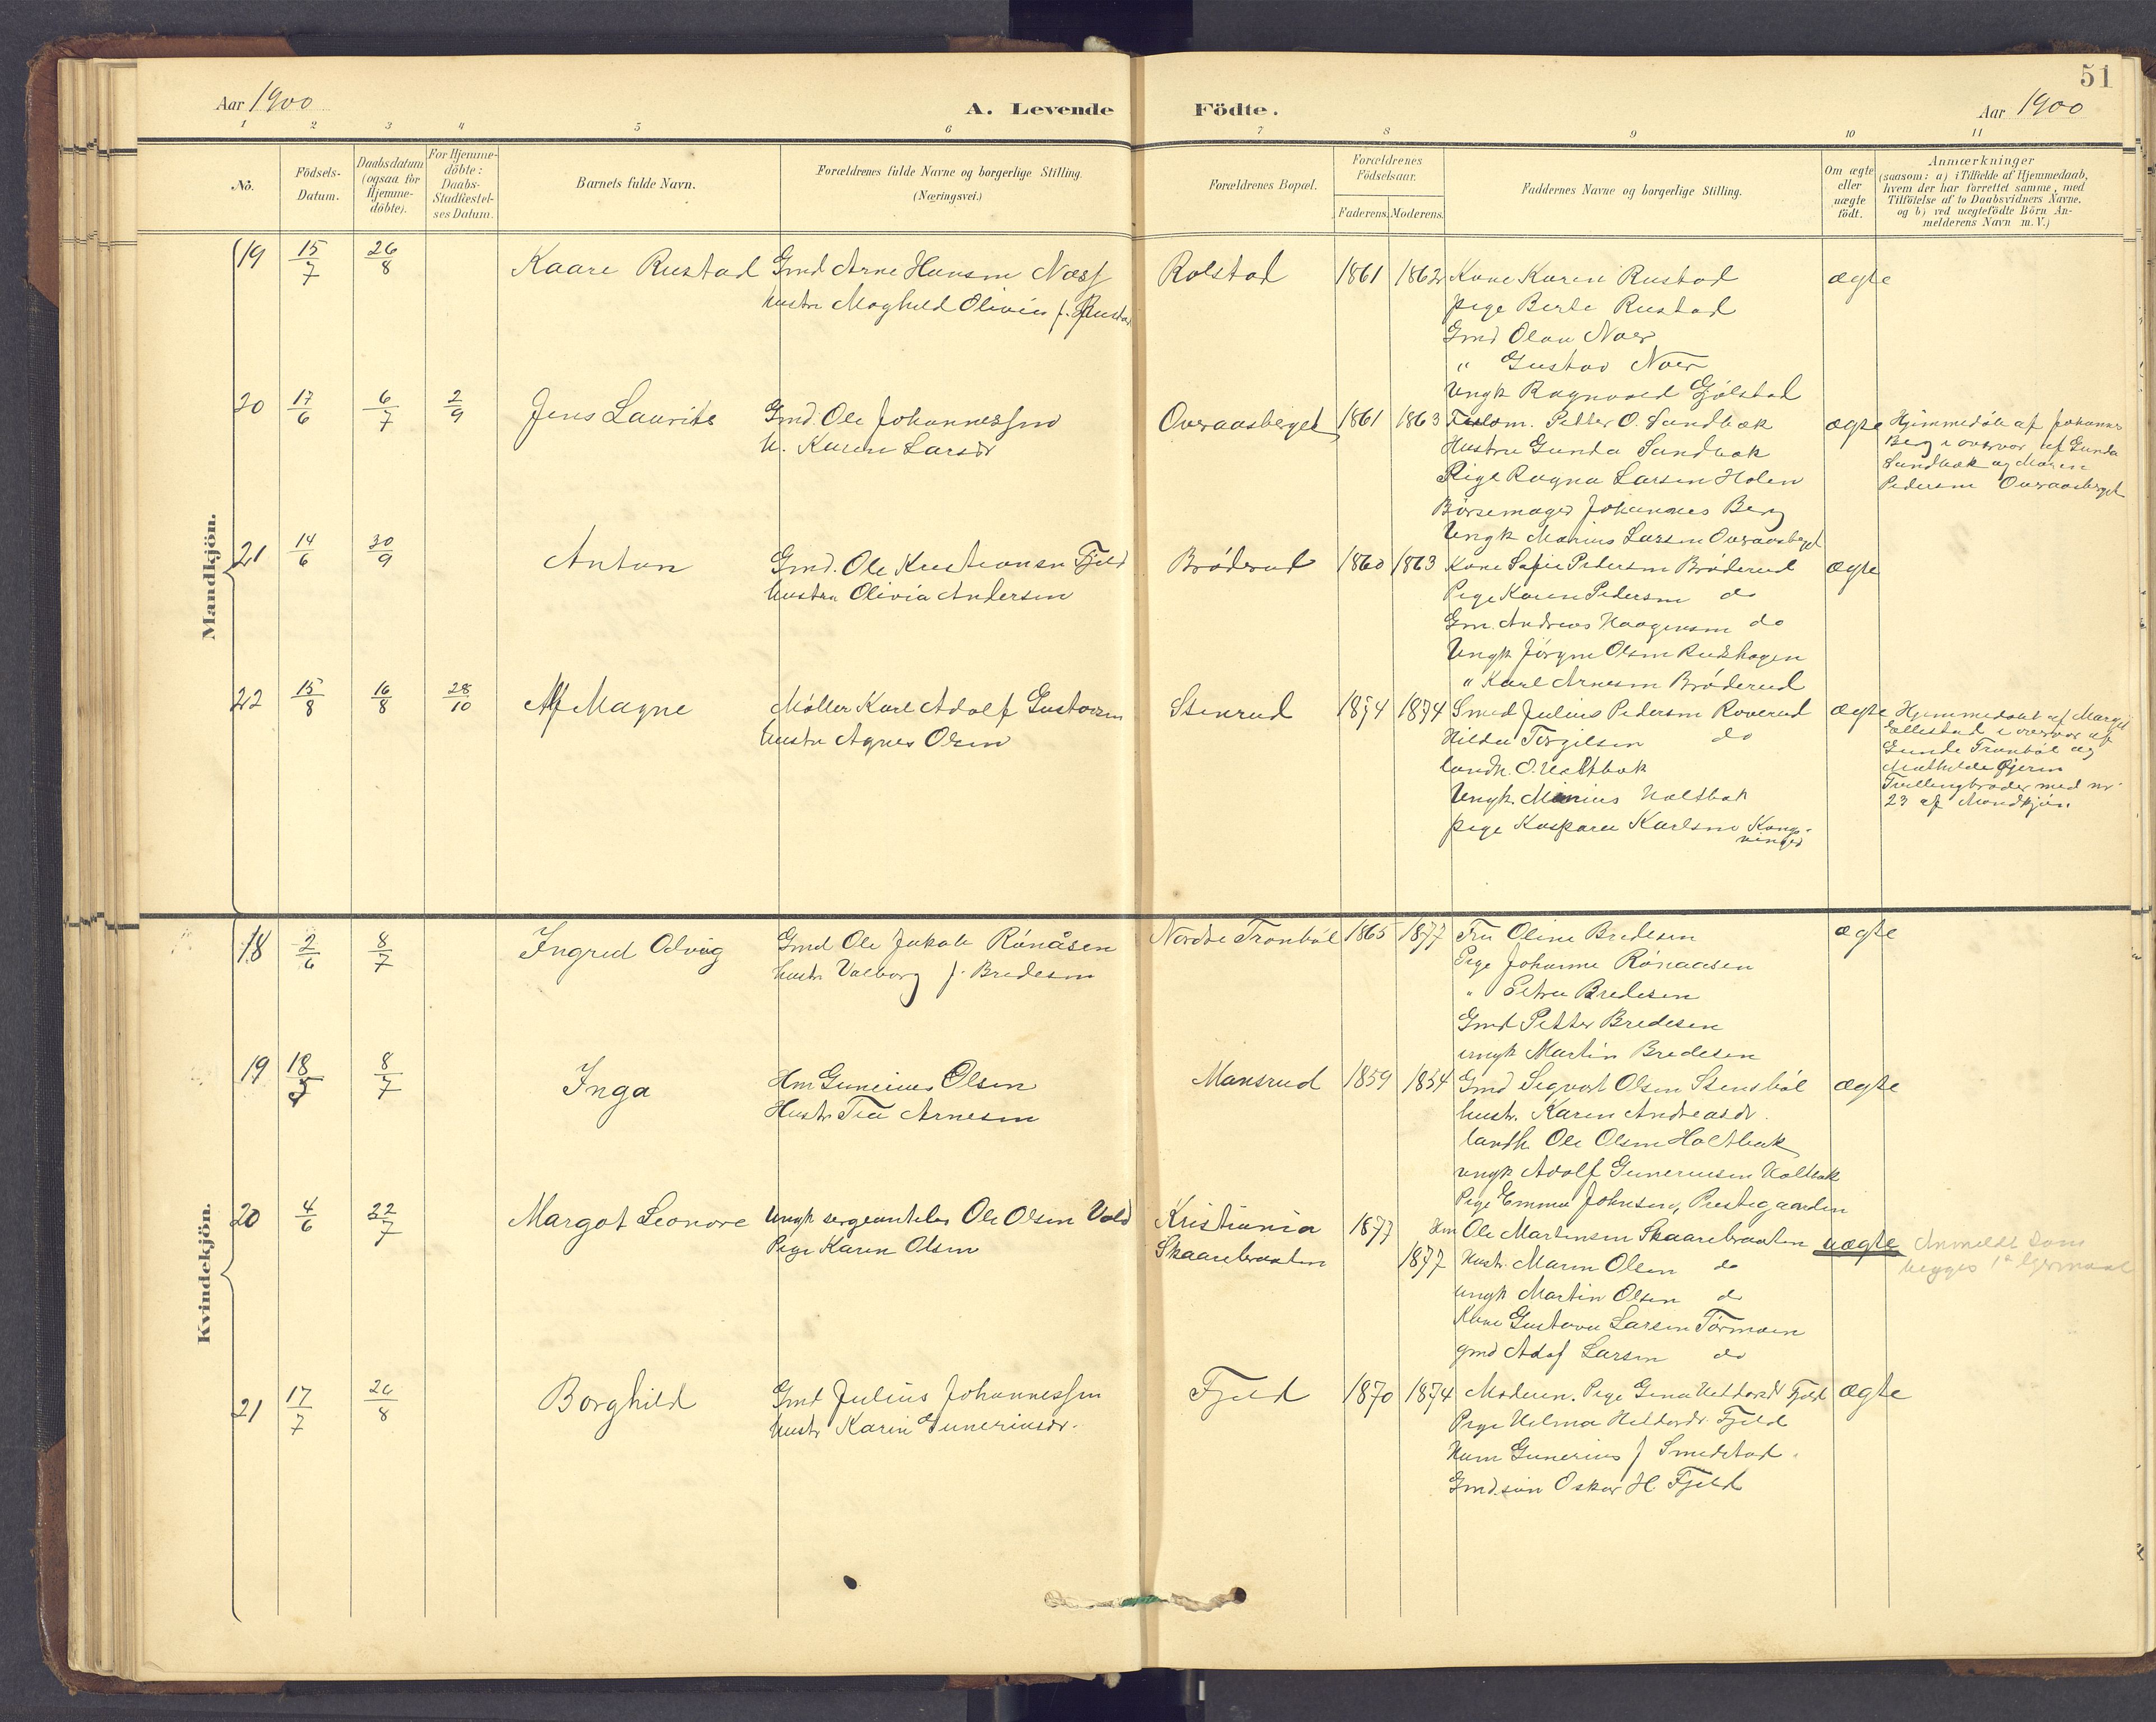 51
Aar 1900
A. Levende Födte.
Aar 1900
1 2 3 4 5 6 7 8 9 10 11
No.
Födsels-
Datum.
Daabsdatum
(ogsaa for
Hjemme-
döbte).
For Hjemme-
döbte:
Daabs-
Stadfæstel-
ses Datum.
Barnets fulde Navn.
Forældrenes fulde Navne og borgerlige Stilling.
(Næringsvei.)
Forældrenes Bopæl.
Forældrenes
Födselsaar.
Faderens. Moderens.
Faddernes Navne og borgerlige Stilling.
Om ægte
eller
uægte
födt.
Anmærkninger
(saasom: a) i Tilfælde af Hjemmedaab,
hvem der har forrettet samme, med
Tilföielse af to Daabsvidners Navne.
og b) ved uægtefödte Börn An-
melderens Navn m.V.)
Mandkjön.
19 15/7 26/8 Kaare Rustad Gmd Arne Hansen Næss Rolstad 1861 1862 Kone Karen Rustad ægte
hustru Maghild Olivia f. Rustad
pige Berte Rustad
Gmd Olau Noer
" Gustav Noer
Ungk Ragnvald Gjölstad
20 17/6 6/7 2/9 Jens Laurits Gmd. Ole Johannessen Overaasberget 1861 1863 Petter O. Sandbæk ægte Hjemmedöbt af Johannes
H. Karen Larsdr
Hustru Gunda Sandbæk
Berg i overvær af Gunda
Sandbæk og Maren
Pige Ragna Larsen Holen
Pedersen Overaasberget
Börsemager Johannes Berg
Ungk Marius Larsen Overaasberget
21 14/6 30/9 Anton Gmd. Ole Kristiansen Fjeld Bröderud 1860 1863 Kone Sofie Pedersen Bröderud ægte
hustru Olivia Andersen
Pige Karen Pedersen do
Gm. Andreas Haagensen do
Ungk Jörgen Olsen Rudshagen
" Karl Arnesen Bröderud
22 15/8 16/8 28/10 Alf Magne Møller Karl Adolf Gustavsen Stenrud 1874 1874 Smed Julius Pedersen Roverud ægte Hjemmedöbt af Margit
hustru Agnes Olsen
Hilda Torgilsen do
Ellestad i overvær af
Gunda Tronböl og
landh. O. Holtbæk
Mathilde Gjeren
Ungk. Marius Holtbæk
Tvillingbroder med nr
23 af Mandkjön
pige Kaspara Karlsen Kongs-
vinger
Kvindekjön.
18 2/6 8/7 Ingrid Solveig Gmd Ole Jakob Rönåsen Nordre Tronböl 1865 1877 Fru Oline Bredesen ægte
hustr Valborg f. Bredesen
Pige Johanne Rönaasen
" Petra Bredesen
Gmd Petter Bredesen
ungk Martin Bredesen
19 18/5 8/7 Inga Hm Gunerius Olsen Mansrud 1859 1854 Gmd Sigvart Olsen Stensböl ægte
Hustr. Tea Arnesen
hustr. Karen Andreasdr.
landh. Ole Olsen Holtbæk
ungk Adolf Guneriusen Holtbæk
Pige Emma Johnsen, Prestegaarden
20 4/6 22/7 Margot Leonore Ungk sergeantelev Ole Olsen Vold Kristiania 1877 Hm Ole Martinsen Skaarebraaten uægte Anmeldt som
Pige Karen Olsen Skaarebraaten 1877 Hustr. Maren Olsen do
begges 1ste leiermaal
ungk Martin Olsen do
Kone Gustava Larsen Tormoen
gmd Adof Larsen do
21 17/7 26/8 Borghild Gmd Julius Johannessen Fjeld 1870 1874 Moderen. Pige Gina Fjeld ægte
hustr Karen Guneriusdr.
Pige Helma Fjeld
Hum Gunerius J Smedstad.
Gmd.sön Oskar H. Fjeld